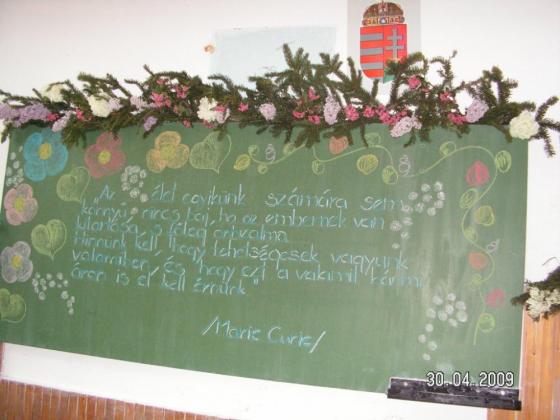 "Az élet egyikünk számára sem
könnyű, nincs baj, ha az embernek van
kitartása, s főleg önbizalma.
Hinnünk kell, hogy tehetségesek vagyunk
valamiben, és hogy ezt a valamit bármi
áron is el kell érnünk"
/Marie Curie/
30.04.2009